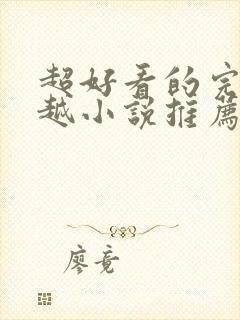 超好看的完
越小說推薦
廖竟